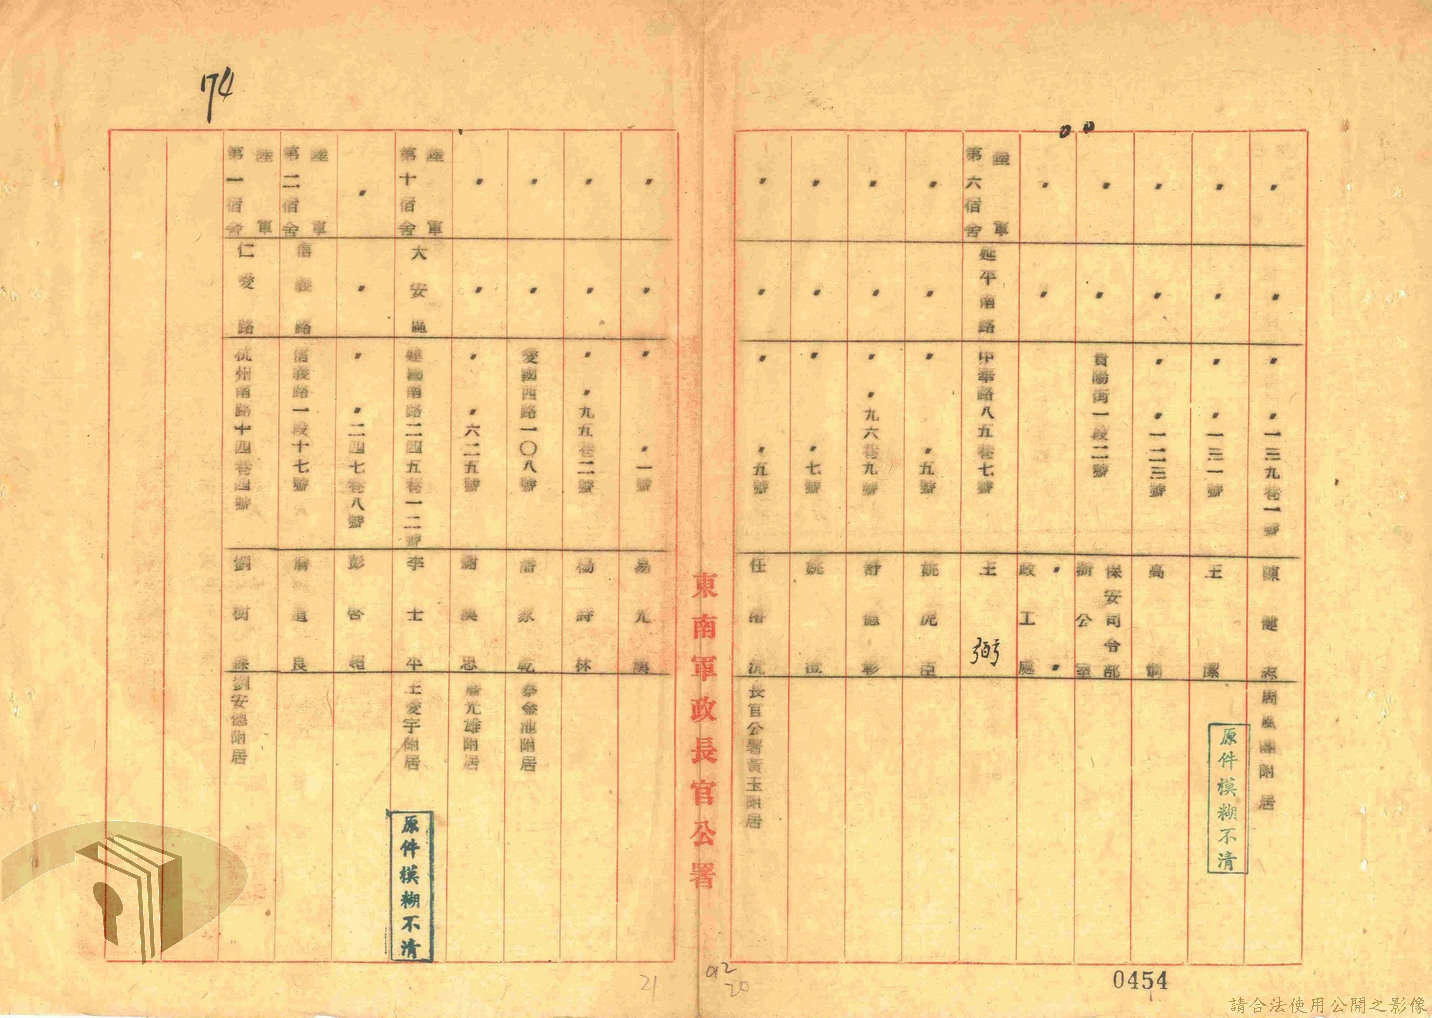 〃 〃 〃 〃一三九巷一號 陳健志 周
附居
〃 〃 〃 〃一三一號 王潔
〃 〃 〃 〃一二三號 高
〃 〃 貴陽街一段二號 保安司令部
辦公室
〃 〃 〃 〃
政工處
陸軍
第六宿舍 延平南路 中華路八五巷七號 王弼
〃 〃 〃 〃五號 姚虎臣
〃 〃 〃 〃九六巷九號 舒德彰
〃 〃 〃 〃七號 姚澄
〃 〃 〃 〃五號 任 沉 長官公署黃玉附居
原件模糊不清
0454
東南軍政長官公署
012
20
21
〃 〃 〃 〃一號 易光
〃 〃 〃 〃九五巷二號 楊詩林
〃 〃 愛國西路一〇八號 潘家乾 蔡金池附居
〃 〃 〃 〃六二五號 謝漢思 詹光雄附居
陸軍
第十宿舍 大安區 建國南路二四五巷一二號 李士平 王愛宇附居
〃 〃 〃 〃二四七巷八號 彭啓超
陸軍
第二宿舍 信義路 信義路一段十七號 道良
陸軍
第一宿舍 仁愛路 杭州南路十四巷四號 劉樹森 劉安德附居
原件模糊不清
174
請合法使用公開之影像